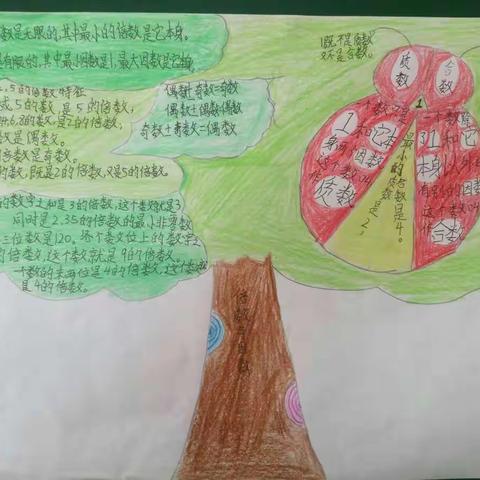 数是无限的,其中最小的倍数是它本身。
有限的,其中最小因数是1,最大因数是它本身
5的倍数特征
或5的数,是5的倍数。
的数,是2的倍数,
数是偶数。
数是奇数。
的数,既是2的倍数,又是5的倍数。
偶数±奇数=奇数
偶数±偶数=偶数
奇数±奇数=偶数
的数字之和是3的倍数,这个数就是3
同时是2.3.5的倍数的最小非零数
三位数是120。各个数位上的数字之
的倍数,这个数就是9的倍数。
一个数的末两位是4的倍数,这个数就
是4的倍数。
倍数与因数
既不是质数
又不是合数。
质数
合数
1
一个数除了
1和它
本身
因数
这个数叫
作
质数
最小的合数是4。
质数是2。
一个数除
了1和它
本身以外
有别的因数
这个数叫
作
合数